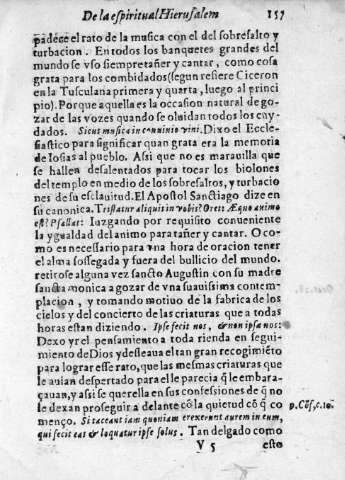 De la espiritual Hierusalem 157
padece el rato de la musica con el del sobresalto y
turbacion. En todos los banquetes grandes del
mundo se vso siempre tañer y cantar, como cosa
grata para los combidados (segun refiere Ciceron
en la Tusculana primera y quarta, luego al princi
pio). Porque aquella es la occasion natural de go-
zar de las vozes quando se oluidan todos los cuy-
dados. Sicut musica in conuiuio vini. Dixo el Eccle-
siastico para significar quan grata era la memoria
de Iosias al pueblo. Assi que no es marauilla que
se hallen desalentados para tocar los biolones
del templo en medio de los sobresaltos, y turbacio
nes de su esclauitud. El Apostol Sanctiago dize en
su canonica. Tristatur aliquis in vobis? Oret: Æquo animo
est? Psallat: Iuzgando por requisito conueniente
la ygualdad del animo para tañer y cantar. O co-
mo es necessario para vna hora de oracion tener
el alma sossegada y fuera del bullicio del mundo.
retirose alguna vez sancto Augustin con su madre
sancta monica a gozar de vna suauissima contem-
placion, y tomando motiuo de la fabrica de los
cielos y del concierto de las criaturas que a todas
horas estan diziendo. Ipse fecit nos, & non ipsæ nos:
Dexo yr el pensamiento a toda rienda en segui-
miento de Dios y desseaua el tan gran recogimiẽto
para lograr esse rato, que las mesmas criaturas que
le auian despertado para el le parecia q̃ le embara-
çauan, y assi se querella en sus confessiones de q̃ no
le dexan proseguir adelante cõ la quietud cõ q̃ co
menço. Si taceant iam quoniam erexerunt aurem in eum,
qui fecit eas & loquatur ipse solus. Tan delgado como
V 5 esto
9. Cõf. c. 10.